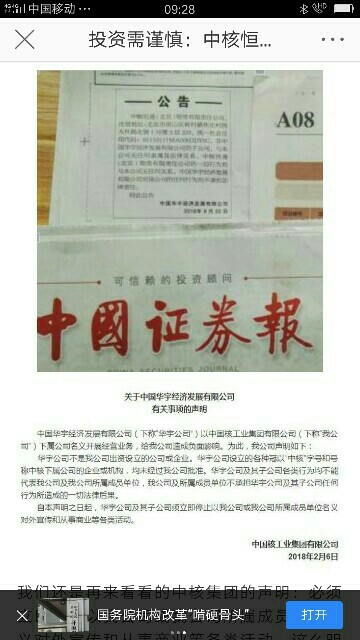 中国移动
09:28
投资需谨慎：中核恒...
公告
中国华宇经济发展有限公司
A08
可信赖的投资顾问
中國证券報
SECURITIES JOURNAL
关于中国华宇经济发展有限公司
有关事项的声明
中国华宇经济发展有限公司（下称“华宇公司”）以中国核工业集团有限公司（下称“我公
司”）下属公司名义开展经营业务，给我公司造成负面影响。为此，我公司声明如下：
华宇公司不是我公司出资设立的公司或企业。华宇公司设立的各种冠以“中核”字号和号
称中核下属公司的企业或机构，均未经过我公司批准。华宇公司及其子公司各类行为均不能
代表我公司及我公司所属成员单位，我公司及所属成员单位不承担华宇公司及其子公司任何
行为所造成的一切法律后果。
自本声明之日起，华宇公司及其子公司须立即停止以我公司或我公司所属成员单位名义
对外宣传和从事商业等各类活动。
中国核工业集团有限公司
2018年2月6日
我们还是再来看看的中核集团的声明：必须
国务院机构改革“啃硬骨头”
打开